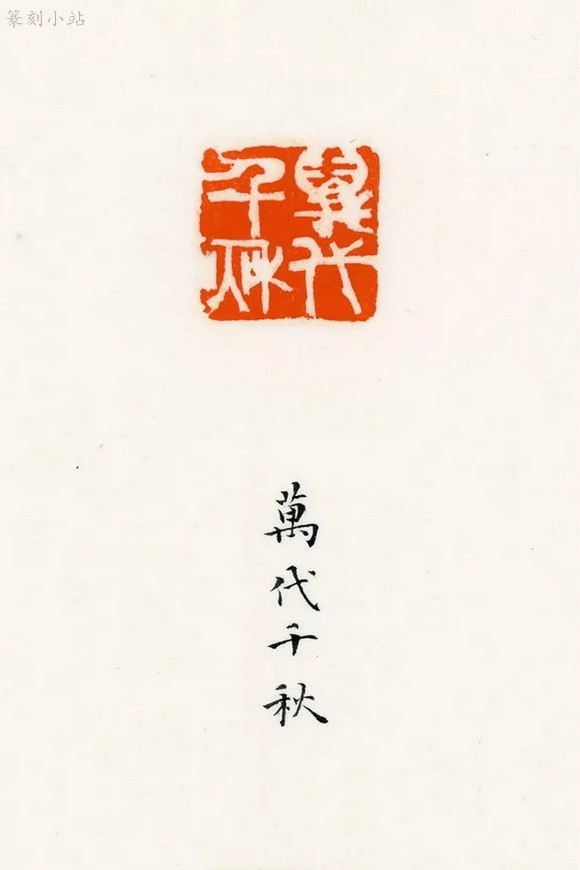 篆刻小站
萬代
千秋
萬代千秋